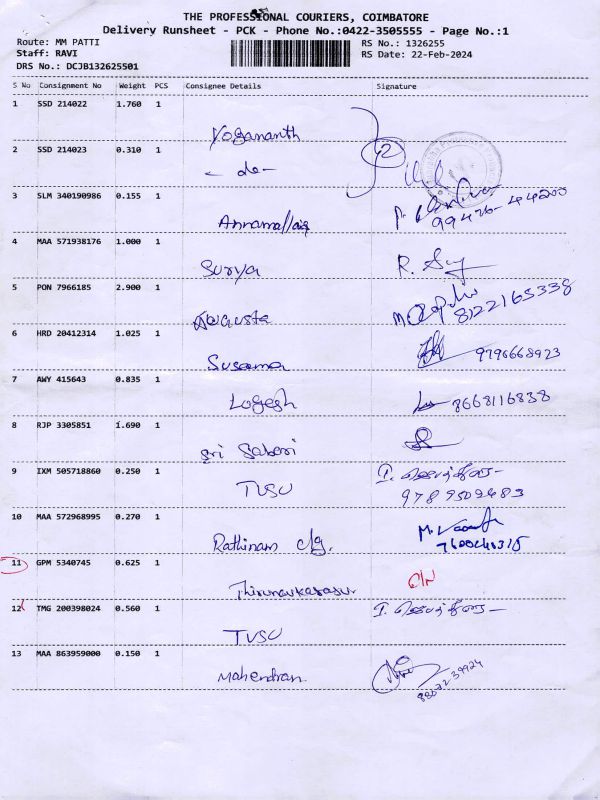 THE PROFESSIONAL COURIERS, COIMBATORE
Delivery Runsheet - PCK - Phone No.:0422-3505555 - Page No.:1
Route: MM PATTI
RS No.: 1326255
Staff: RAVI
RS Date: 22-Feb-2024
DRS No.: DCJB132625501
S No Consignment No Weight PCS Consignee Details Signature
1 SSD 214022 1.760 1
Yogananth
2 SSD 214023 0.310 1
2
- do -
3 SLM 340190986 0.155 1
Annamalai
99426-44200
4 MAA 571938176 1.000 1
Surya R.
5 PON 7966185 2.900 1
8122165338
6 HRD 20412314 1.025 1
Susama 9796668923
7 AWY 415643 0.835 1
Logesh 8668116838
8 RJP 3305851 1.690 1
Sri Sabari
9 IXM 505718860 0.250 1
TVSU
9789509483
10 MAA 572968995 0.270 1
Rathinam clg.
11 GPM 5340745 0.625 1
Thirunavkarasu
12 TMG 200398024 0.560 1
TVSU
13 MAA 863959000 0.150 1
Mahendran